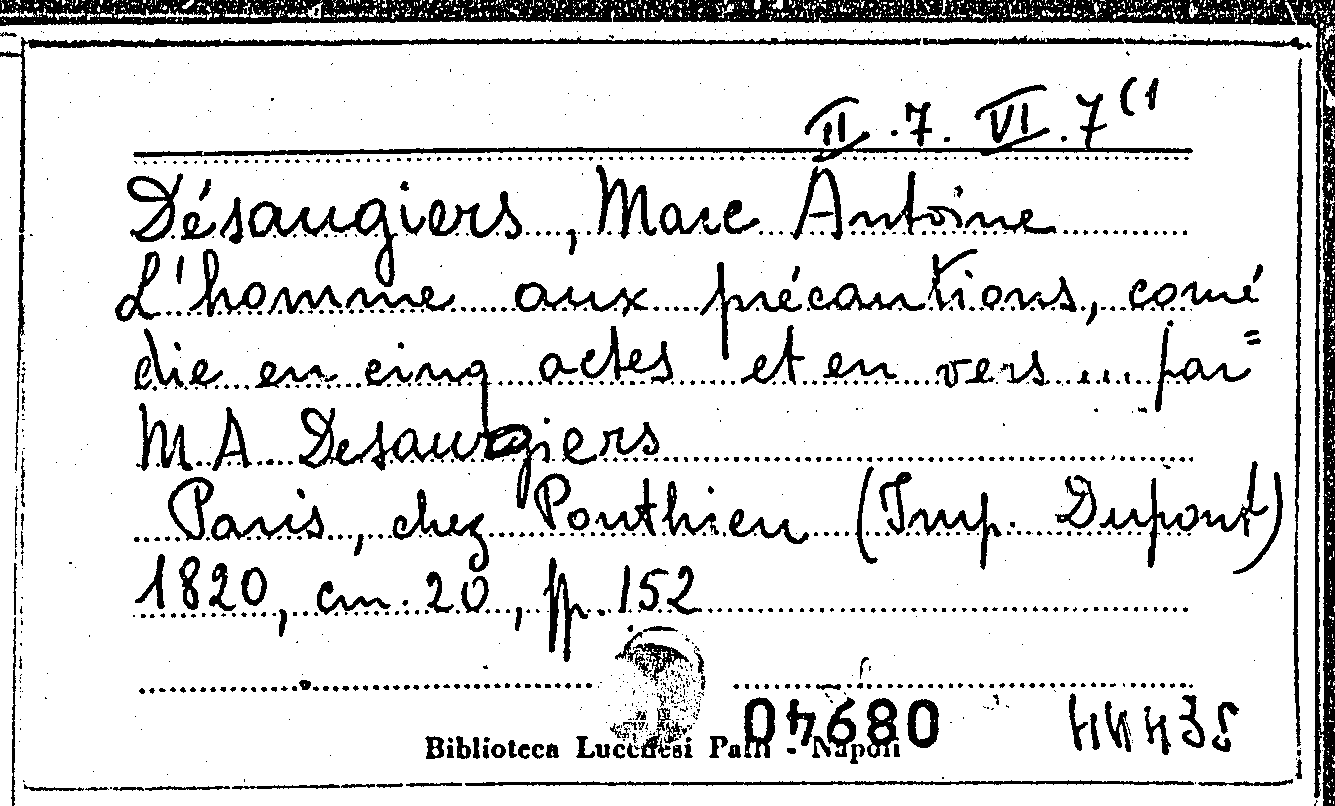 II.7.VI.7(1
Désaugiers, Marc Antoine
L'homme aux précautions, comé
die en cinq actes et en vers ... par
M A Desaugiers
Paris, chez Ponthieu (Imp. Dupont)
1820, cm. 20, pp. 152
Biblioteca Lucchesi Palli - Napoli
04680